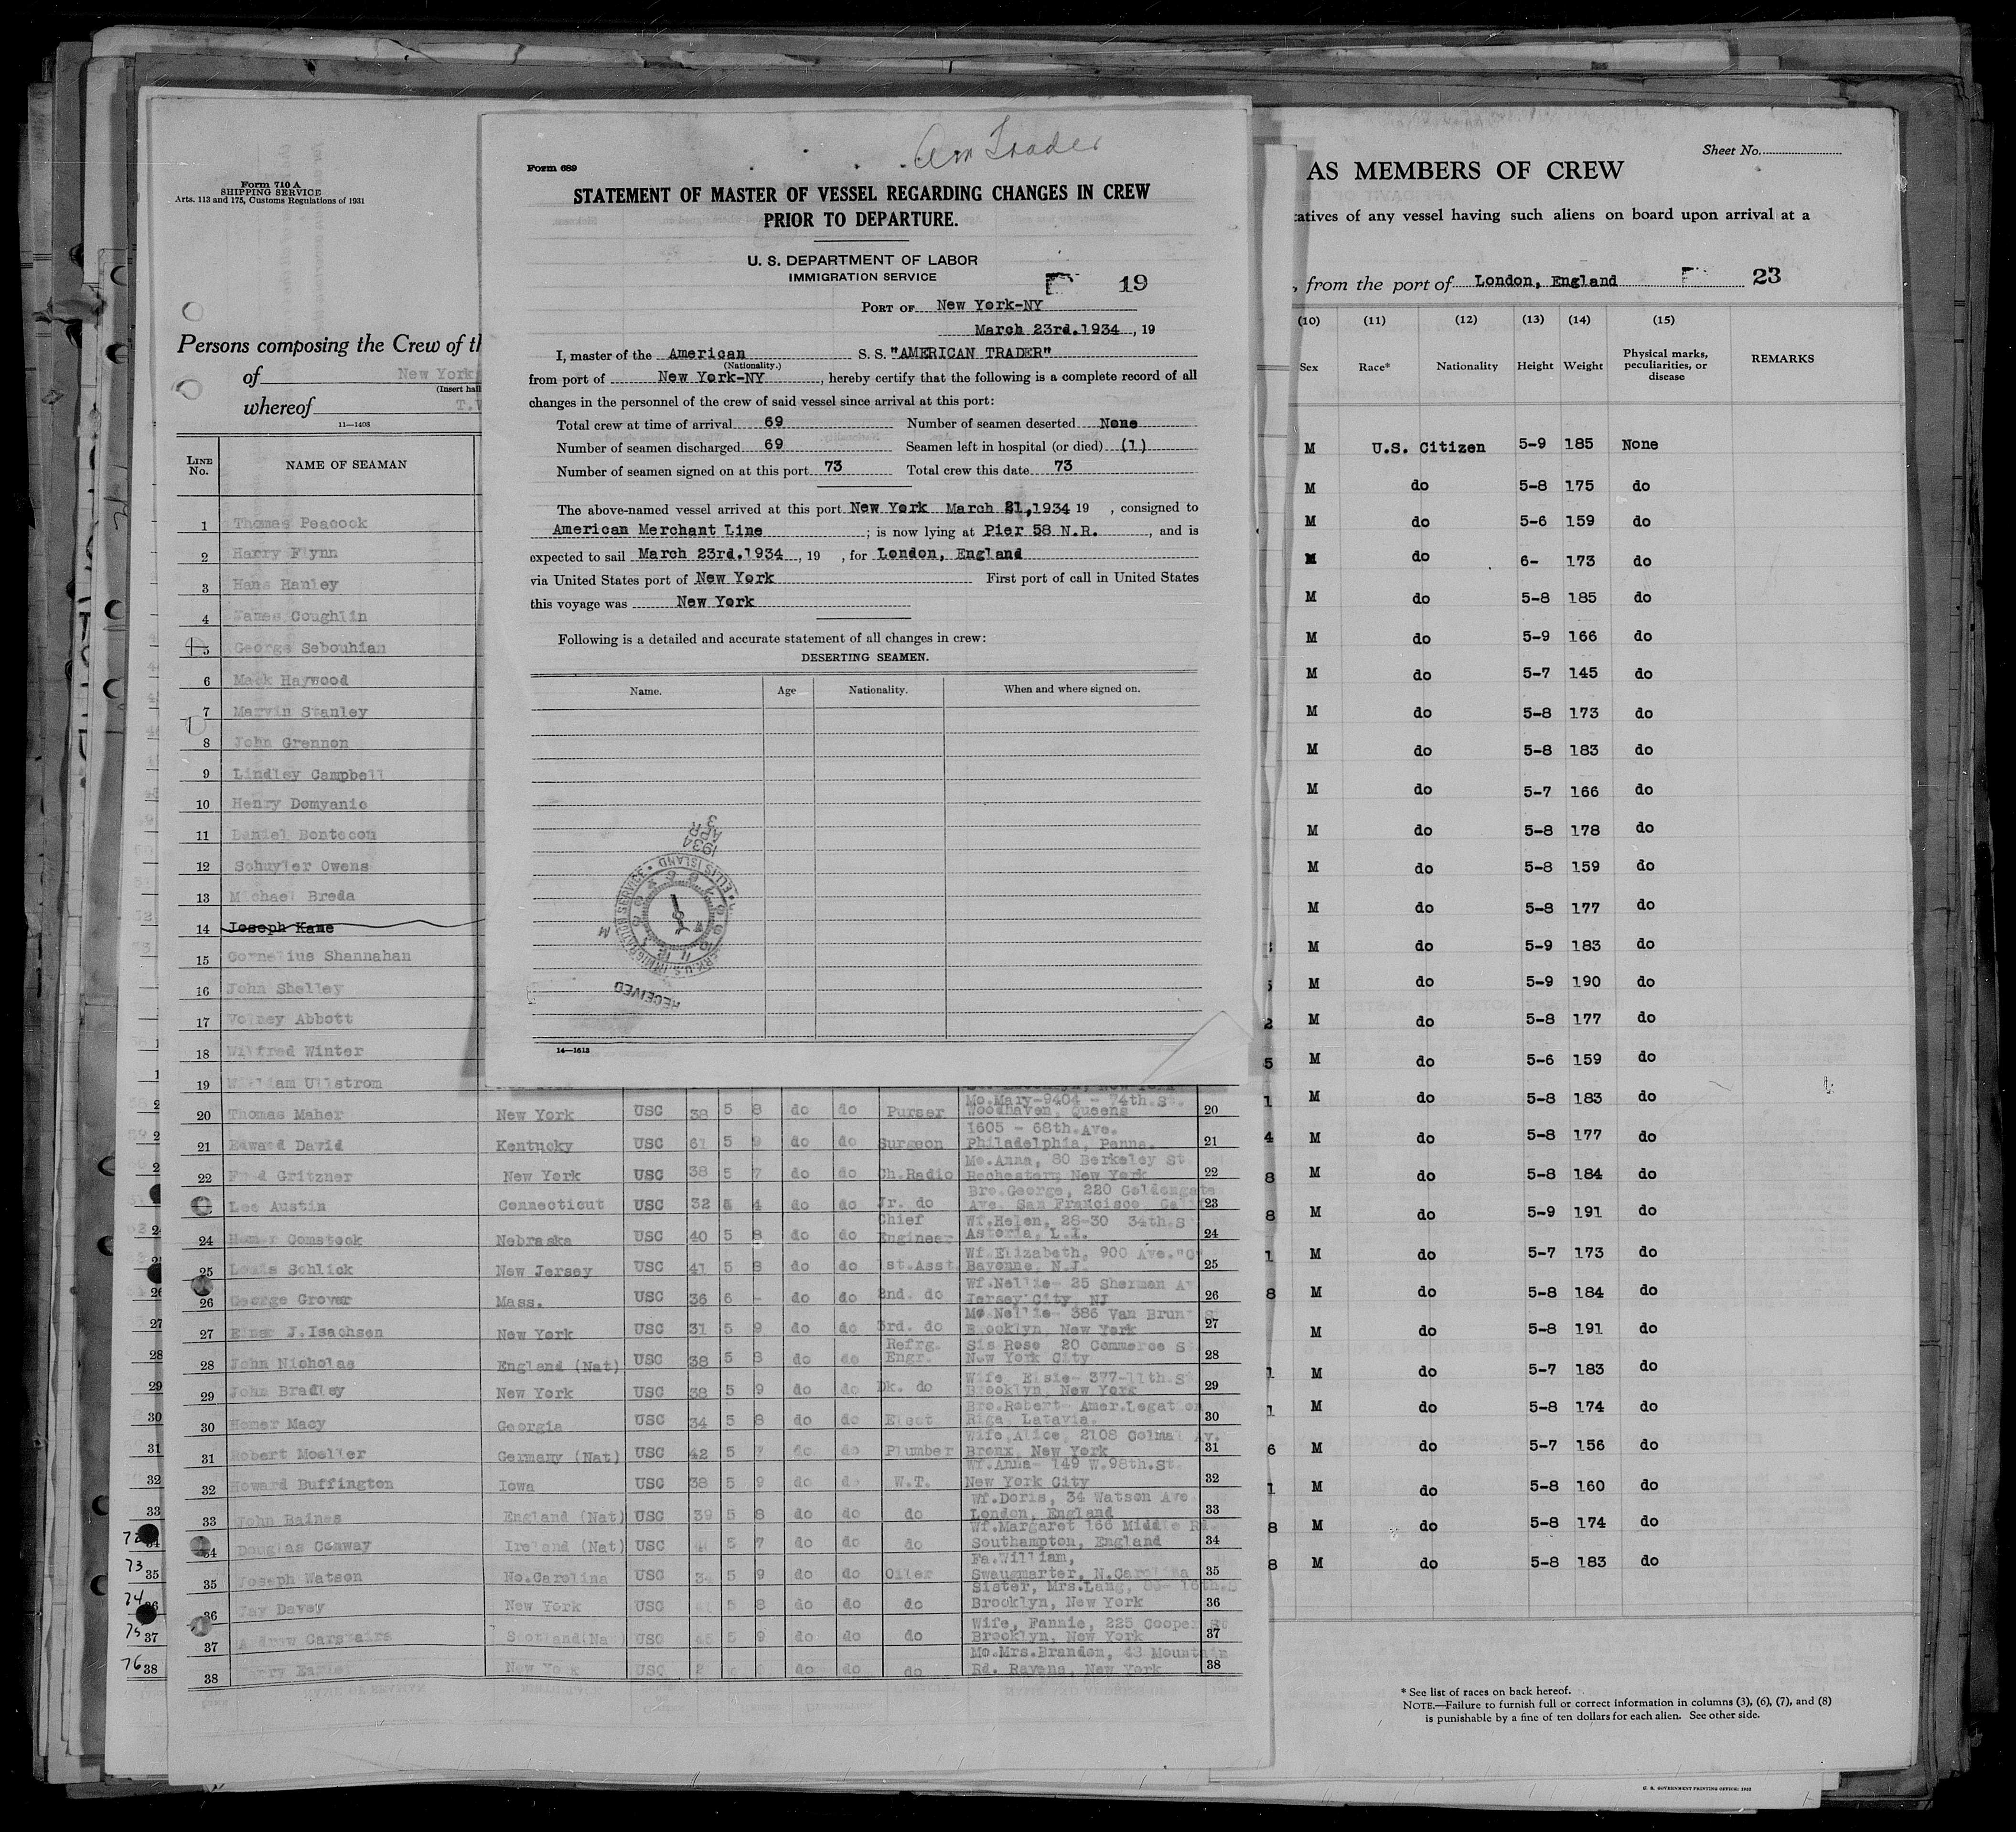 Am Trader
Form 689
STATEMENT OF MASTER OF VESSEL REGARDING CHANGES IN CREW
PRIOR TO DEPARTURE.
U. S. DEPARTMENT OF LABOR
IMMIGRATION SERVICE
19
PORT OF New York-NY
March 23rd.1934, 19
I, master of the American S. S. "AMERICAN TRADER"
(Nationality.)
from port of New York-NY, hereby certify that the following is a complete record of all
changes in the personnel of the crew of said vessel since arrival at this port:
Total crew at time of arrival 69 Number of seamen deserted None
Number of seamen discharged 69 Seamen left in hospital (or died) (1)
Number of seamen signed on at this port 73 Total crew this date 73
The above-named vessel arrived at this port New York March 21,1934 19 , consigned to
American Merchant Line ; is now lying at Pier 58 N.R. , and is
expected to sail March 23rd.1934, 19 , for London, England
via United States port of New York First port of call in United States
this voyage was New York
Following is a detailed and accurate statement of all changes in crew:
DESERTING SEAMEN.
Name. Age Nationality. When and where signed on.
1934
APR
3
ELLIS ISLAND
RECEIVED
14—1613
Form 710 A
SHIPPING SERVICE
Arts. 113 and 175, Customs Regulations of 1931
Persons composing the Crew of th
of New York
(Insert hail
whereof T.
11—1408
LINE No. NAME OF SEAMAN
1 Thomas Peacock
2 Harry Flynn
3 Hans Hanley
4 James Coughlin
5 George Sebouhian
6 Mack Haywood
7 Marvin Stanley
8 John Grennon
9 Lindley Campbell
10 Henry Domyanic
11 Daniel Bontecou
12 Schuyler Owens
13 Michael Breda
14 Joseph Kane
15 Cornelius Shannahan
16 John Shelley
17 Volney Abbott
18 Wilfred Winter
19 William Ullstrom
20 Thomas Maher New York USC 38 5 8 do do Purser Mo.Mary-9404 - 74th.St. Woodhaven, Queens 20
21 Edward David Kentucky USC 61 5 9 do do Surgeon 1605 - 68th.Ave. Philadelphia, Panna. 21
22 Fred Gritzner New York USC 38 5 7 do do Ch.Radio Mo.Anna, 80 Berkeley St Rochester, New York 22
23 Lee Austin Connecticut USC 32 5 4 do do Jr. do Bro.George, 220 Goldengate Ave. San Francisco, Calif 23
24 Homer Comstock Nebraska USC 40 5 8 do do Chief Engineer Wf.Helen, 28-30 34th.S Astoria, L.I. 24
25 Louis Schlick New Jersey USC 41 5 8 do do 1st.Asst. Wf.Elizabeth, 900 Ave."C" Bayonne, N.J. 25
26 George Grover Mass. USC 36 6 - do do 2nd. do Wf.Nellie- 25 Sherman Av Jersey City, NJ 26
27 Einar J.Isachsen New York USC 31 5 9 do do 3rd. do Mo.Nellie- 386 Van Brunt S Brooklyn, New York 27
28 John Nicholas England (Nat) USC 38 5 8 do do Refrg. Engr. Sis Rose 20 Commerce S New York City 28
29 John Bradley New York USC 38 5 9 do do Dk. do Wife, Elsie- 377-11th.S Brooklyn, New York 29
30 Homer Macy Georgia USC 34 5 8 do do Elect Bro.Robert- Amer.Legation Riga, Latavia. 30
31 Robert Moeller Germany (Nat) USC 42 5 7 do do Plumber Wife, Alice, 2108 Colmal Av. Bronx, New York 31
32 Howard Buffington Iowa USC 38 5 9 do do W.T. Wf.Anna- 149 W.98th.St. New York City 32
33 John Baines England (Nat) USC 39 5 8 do do do Wf.Doris, 34 Watson Ave. London, England 33
34 Douglas Conway Ireland (Nat) USC 5 7 do do do Wf.Margaret 166 Middle Rd. Southampton, England 34
35 Joseph Watson No.Carolina USC 34 5 9 do do Oiler Fa.William, Swaugmarter, N.Carolina 35
36 Jay Davey New York USC 41 5 8 do do do Sister, Mrs.Lang, 16th.S Brooklyn, New York 36
37 Andrew Carstairs Scotland(Na USC 5 9 do do do Wife, Fannie, 225 Cooper St Brooklyn, New York 37
38 New York USC do do do Mo.Mrs.Brandon, 48 Mountain Rd. Ravena, New York 38
73
74
75
76
Sheet No.
AS MEMBERS OF CREW
tatives of any vessel having such aliens on board upon arrival at a
, from the port of London, England 23
(10) (11) (12) (13) (14) (15)
Sex Race* Nationality Height Weight Physical marks, peculiarities, or disease REMARKS
M U.S. Citizen 5-9 185 None
M do 5-8 175 do
M do 5-6 159 do
M do 6- 173 do
M do 5-8 185 do
M do 5-9 166 do
M do 5-7 145 do
M do 5-8 173 do
M do 5-8 183 do
M do 5-7 166 do
M do 5-8 178 do
M do 5-8 159 do
M do 5-8 177 do
M do 5-9 183 do
M do 5-9 190 do
M do 5-8 177 do
M do 5-6 159 do
M do 5-8 183 do
M do 5-8 177 do
M do 5-8 184 do
M do 5-9 191 do
M do 5-7 173 do
M do 5-8 184 do
M do 5-8 191 do
M do 5-7 183 do
M do 5-8 174 do
M do 5-7 156 do
M do 5-8 160 do
M do 5-8 174 do
M do 5-8 183 do
* See list of races on back hereof.
NOTE.—Failure to furnish full or correct information in columns (3), (6), (7), and (8)
is punishable by a fine of ten dollars for each alien. See other side.
U. S. GOVERNMENT PRINTING OFFICE: 1932